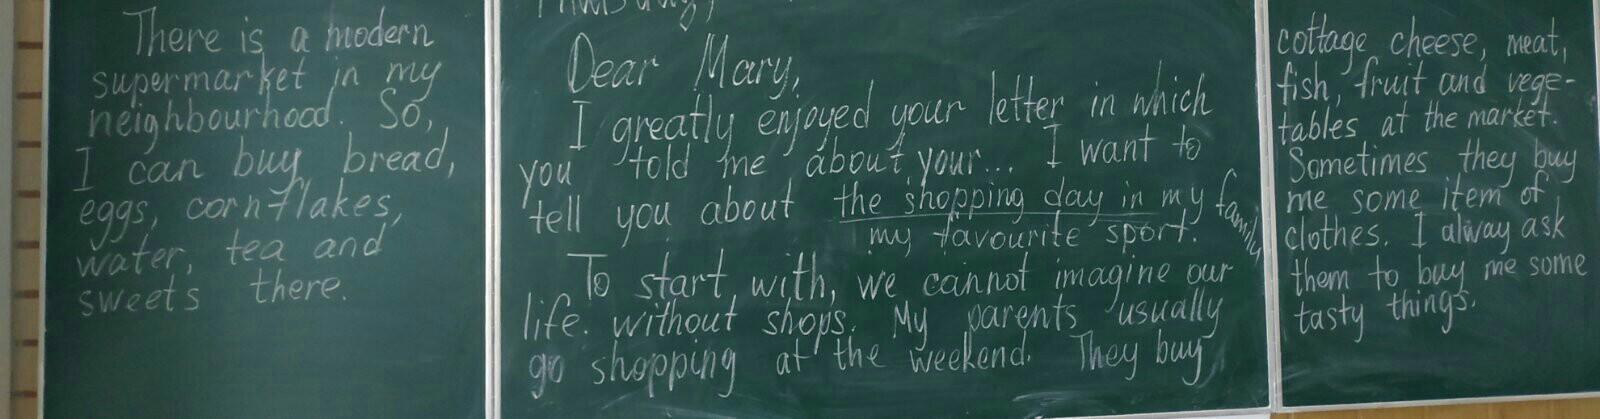 There is a modern
supermarket in my
neighbourhood. So,
I can buy bread,
eggs, cornflakes,
water, tea and
sweets there.
Dear Mary,
I greatly enjoyed your letter in which
you told me about your... I want to
tell you about the shopping day in my family
my favourite sport.
To start with, we cannot imagine our
life. without shops. My parents usually
go shopping at the weekend. They buy
cottage cheese, meat,
fish, fruit and vege-
tables at the market.
Sometimes they buy
me some item of
clothes. I alway ask
them to buy me some
tasty things.